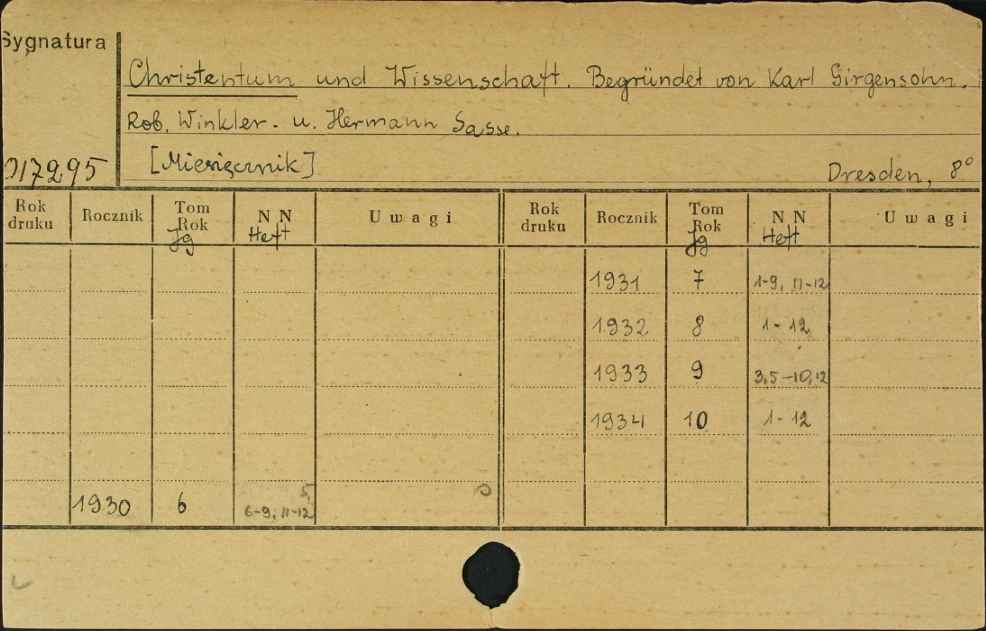 Sygnatura
Christentum und Wissenschaft. Begründet von Karl Girgensohn.
Rob. Winkler. u. Hermann Sasse.
[Miesięcznik]
017295
Dresden, 8°
Rok druku Rocznik Tom Rok Jg N N Heft Uwagi Rok druku Rocznik Tom Rok Jg N N Heft Uwagi
1931 7 1-9, 11-12
1932 8 1-12
1933 9 3,5-10,12
1934 10 1-12
1930 6 6-9, 11-12